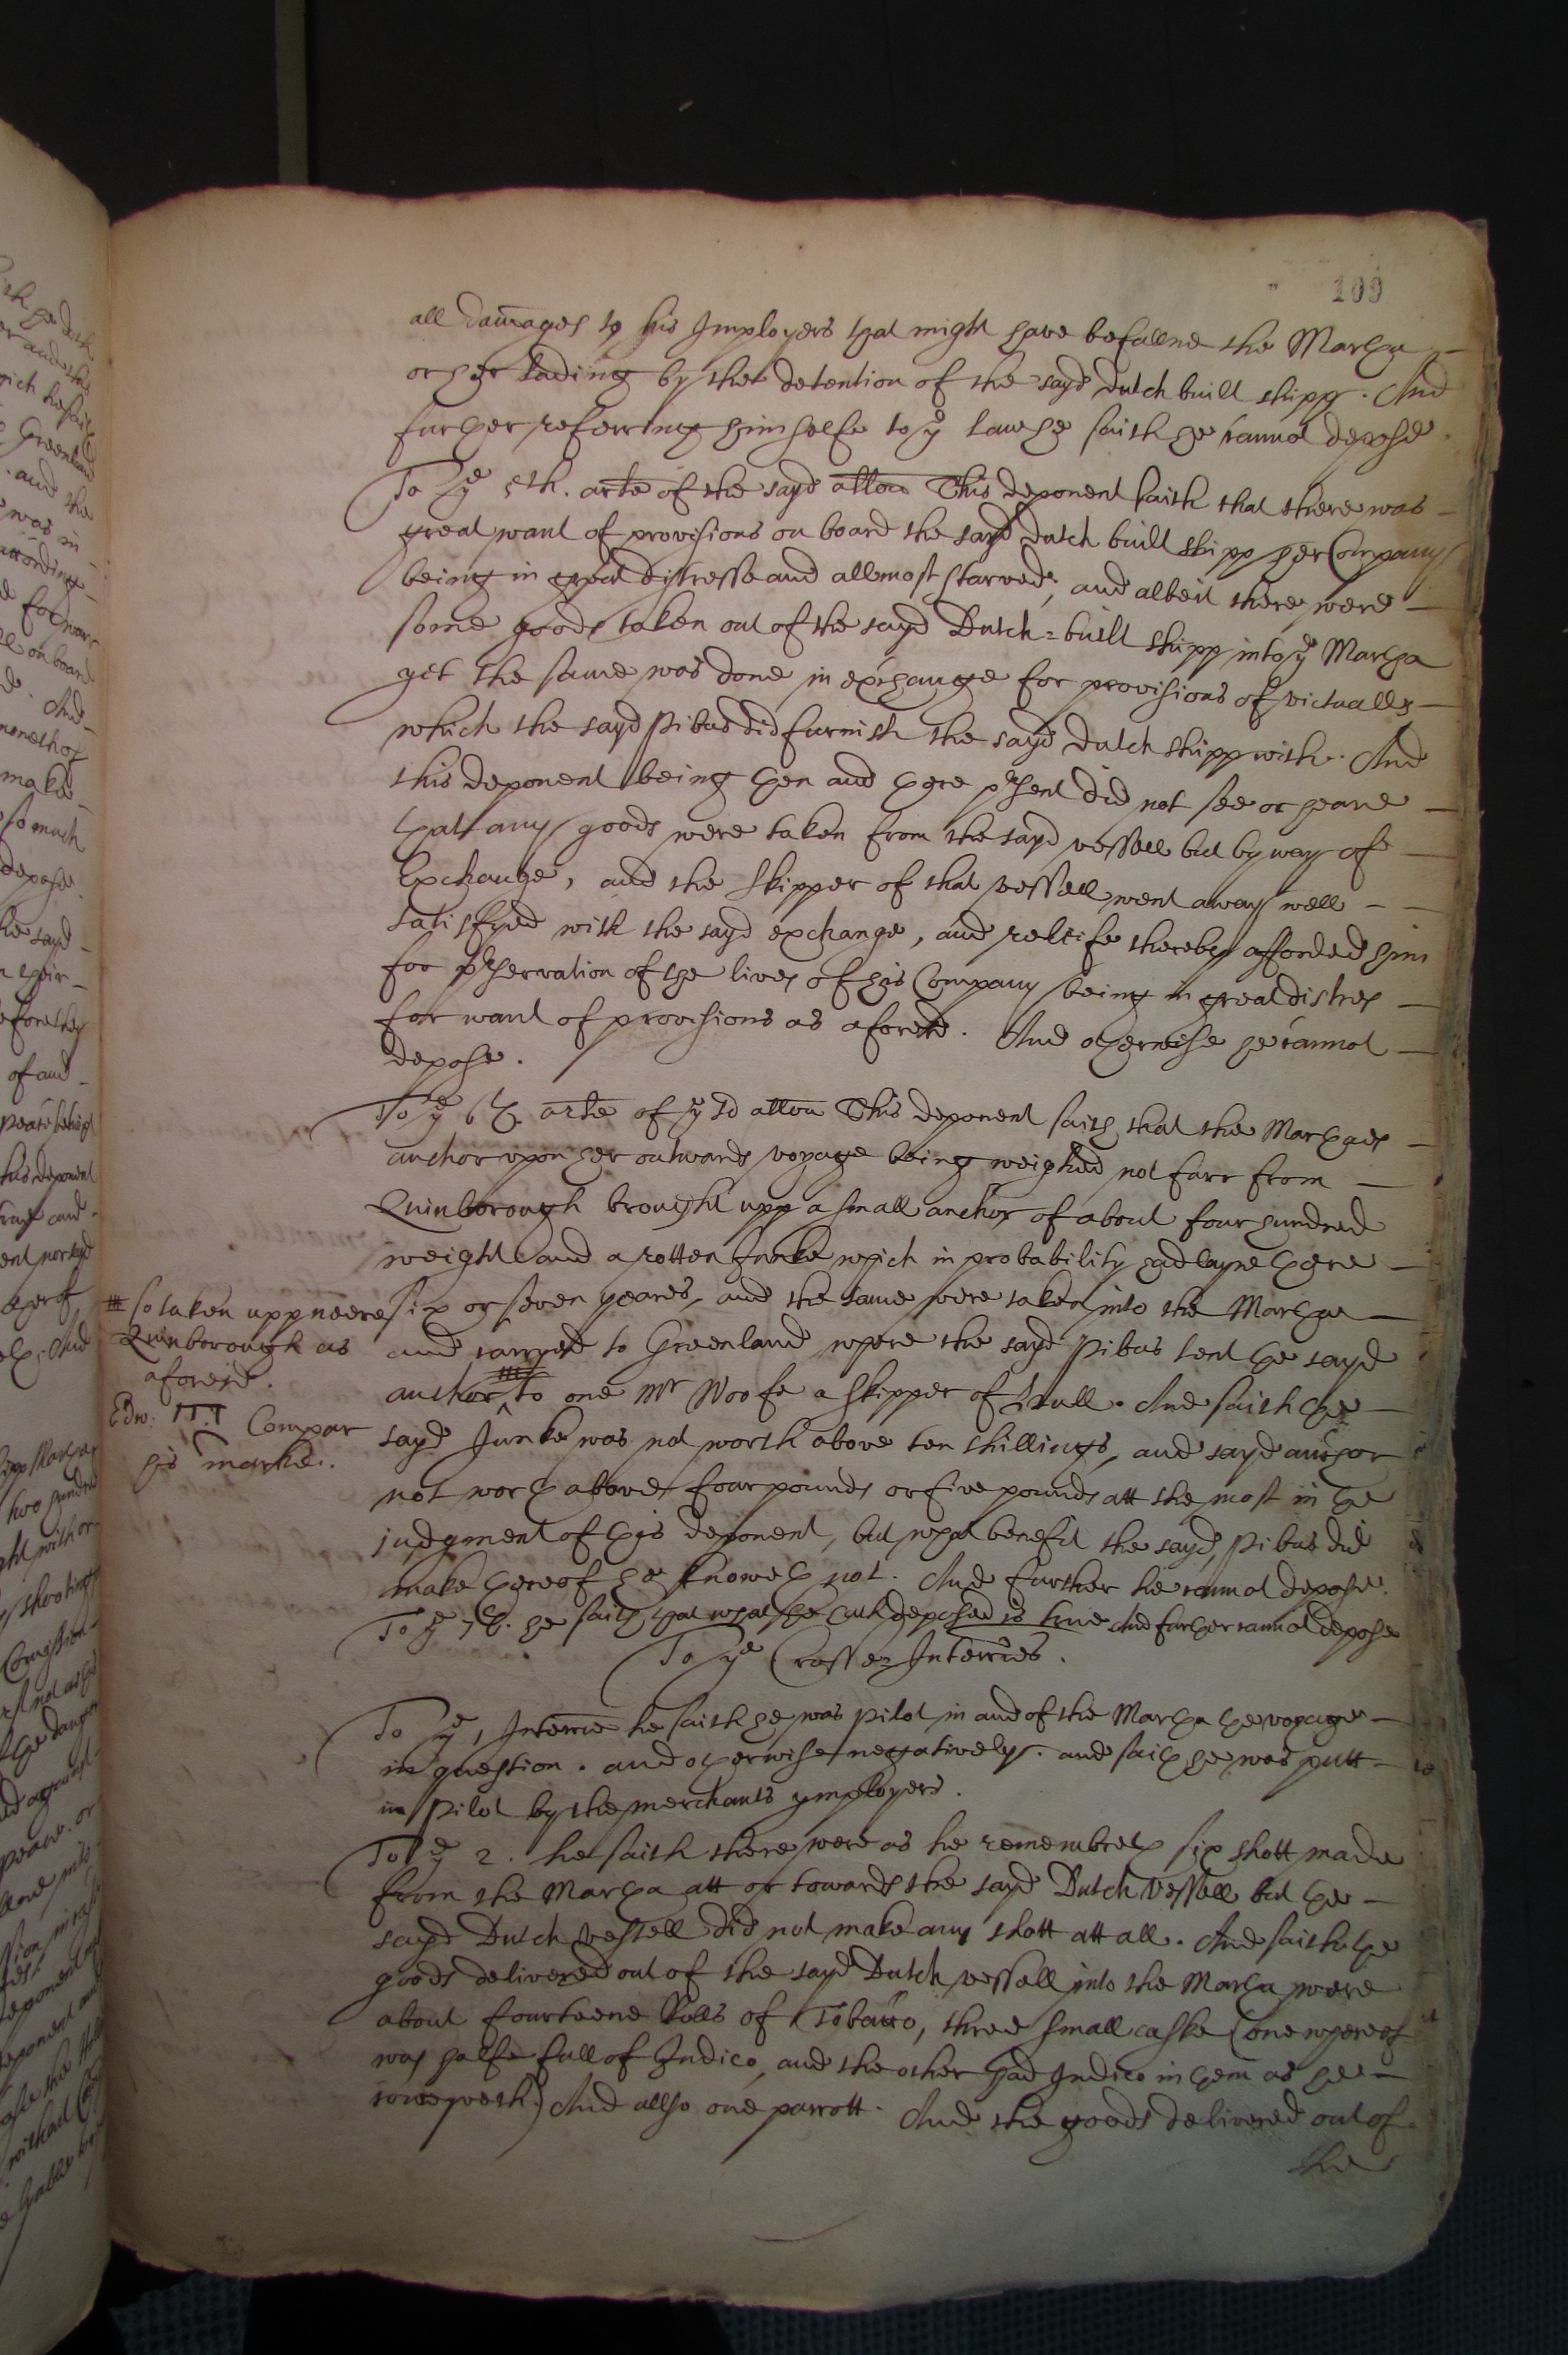 109
all damages to his Imployers that might have befallne the Martha
or her lading by the detention of the sayd dutch built shipp. And
further referring himselfe to ye law he saith he cannot depose.
To ye 5th. arle of the sayd allon This deponent saith that there was
great want of provisions on board the sayd dutch built shipp her Company
being in great distresse and allmost starved, and albeit there were
some goods taken out of the sayd Dutch=built shipp into ye Martha
yet the same was done in exchange for provisions of victualls
which the sayd Pibus did furnish the sayd dutch shipp with. And
this deponent being then and there present did not see or heare
that any goods were taken from the sayd vessell but by way of
Exchange, and the skipper of that vessell went away well
satisfyed with the sayd exchange, and releife thereby afforded him
for preservation of the lives of his Company being in great distres
for want of provisions as aforesd. And otherwise he cannot
depose.
To ye 6th. arle of ye sd allon This deponent saith that the Marthaes
anchor upon her outwards voyage being weighed not farr from
Quinborough brought upp a small anchor of about four hundred
weight and a rotten Junke which in probability had layne there
six or seven yeares, and the same were taken into the Martha
and carryed to Greenland where the sayd Pibus lent the sayd
anchor to one Mr Woofe a skipper of Hull. And saith the
sayd Junke was not worth above ten shillings, and sayd anchor
not worth above four pounds or five pounds att the most in the
judgment of this deponent, but what benefit the sayd Pibus did
make thereof he knoweth not. And further he cannot depose.
To ye 7th. he saith that what he hath deposed is true And further cannot depose
so taken upp neere
Quinborough as
aforesd.
Edw: Compar
his marke.
To ye Crosse Interries.
To ye 1 Interrie he saith he was pilot in and of the Martha the voyage
in question. and otherwise negatively. and saith he was putt
in Pilot by the merchants ymployers.
To ye 2. he saith there were as he remembreth six shott made
from the Martha att or towards the sayd Dutch Vessell but the
sayd Dutch vessell did not make any shott att all. And saith the
goods delivered out of the sayd Dutch vessell into the Martha were
about fourteene Rolls of Tobacco, three small caske (one whereof
was halfe full of Indico, and the other had Indico in them as he
) And allso one parrott. And the goods delivered out of
the